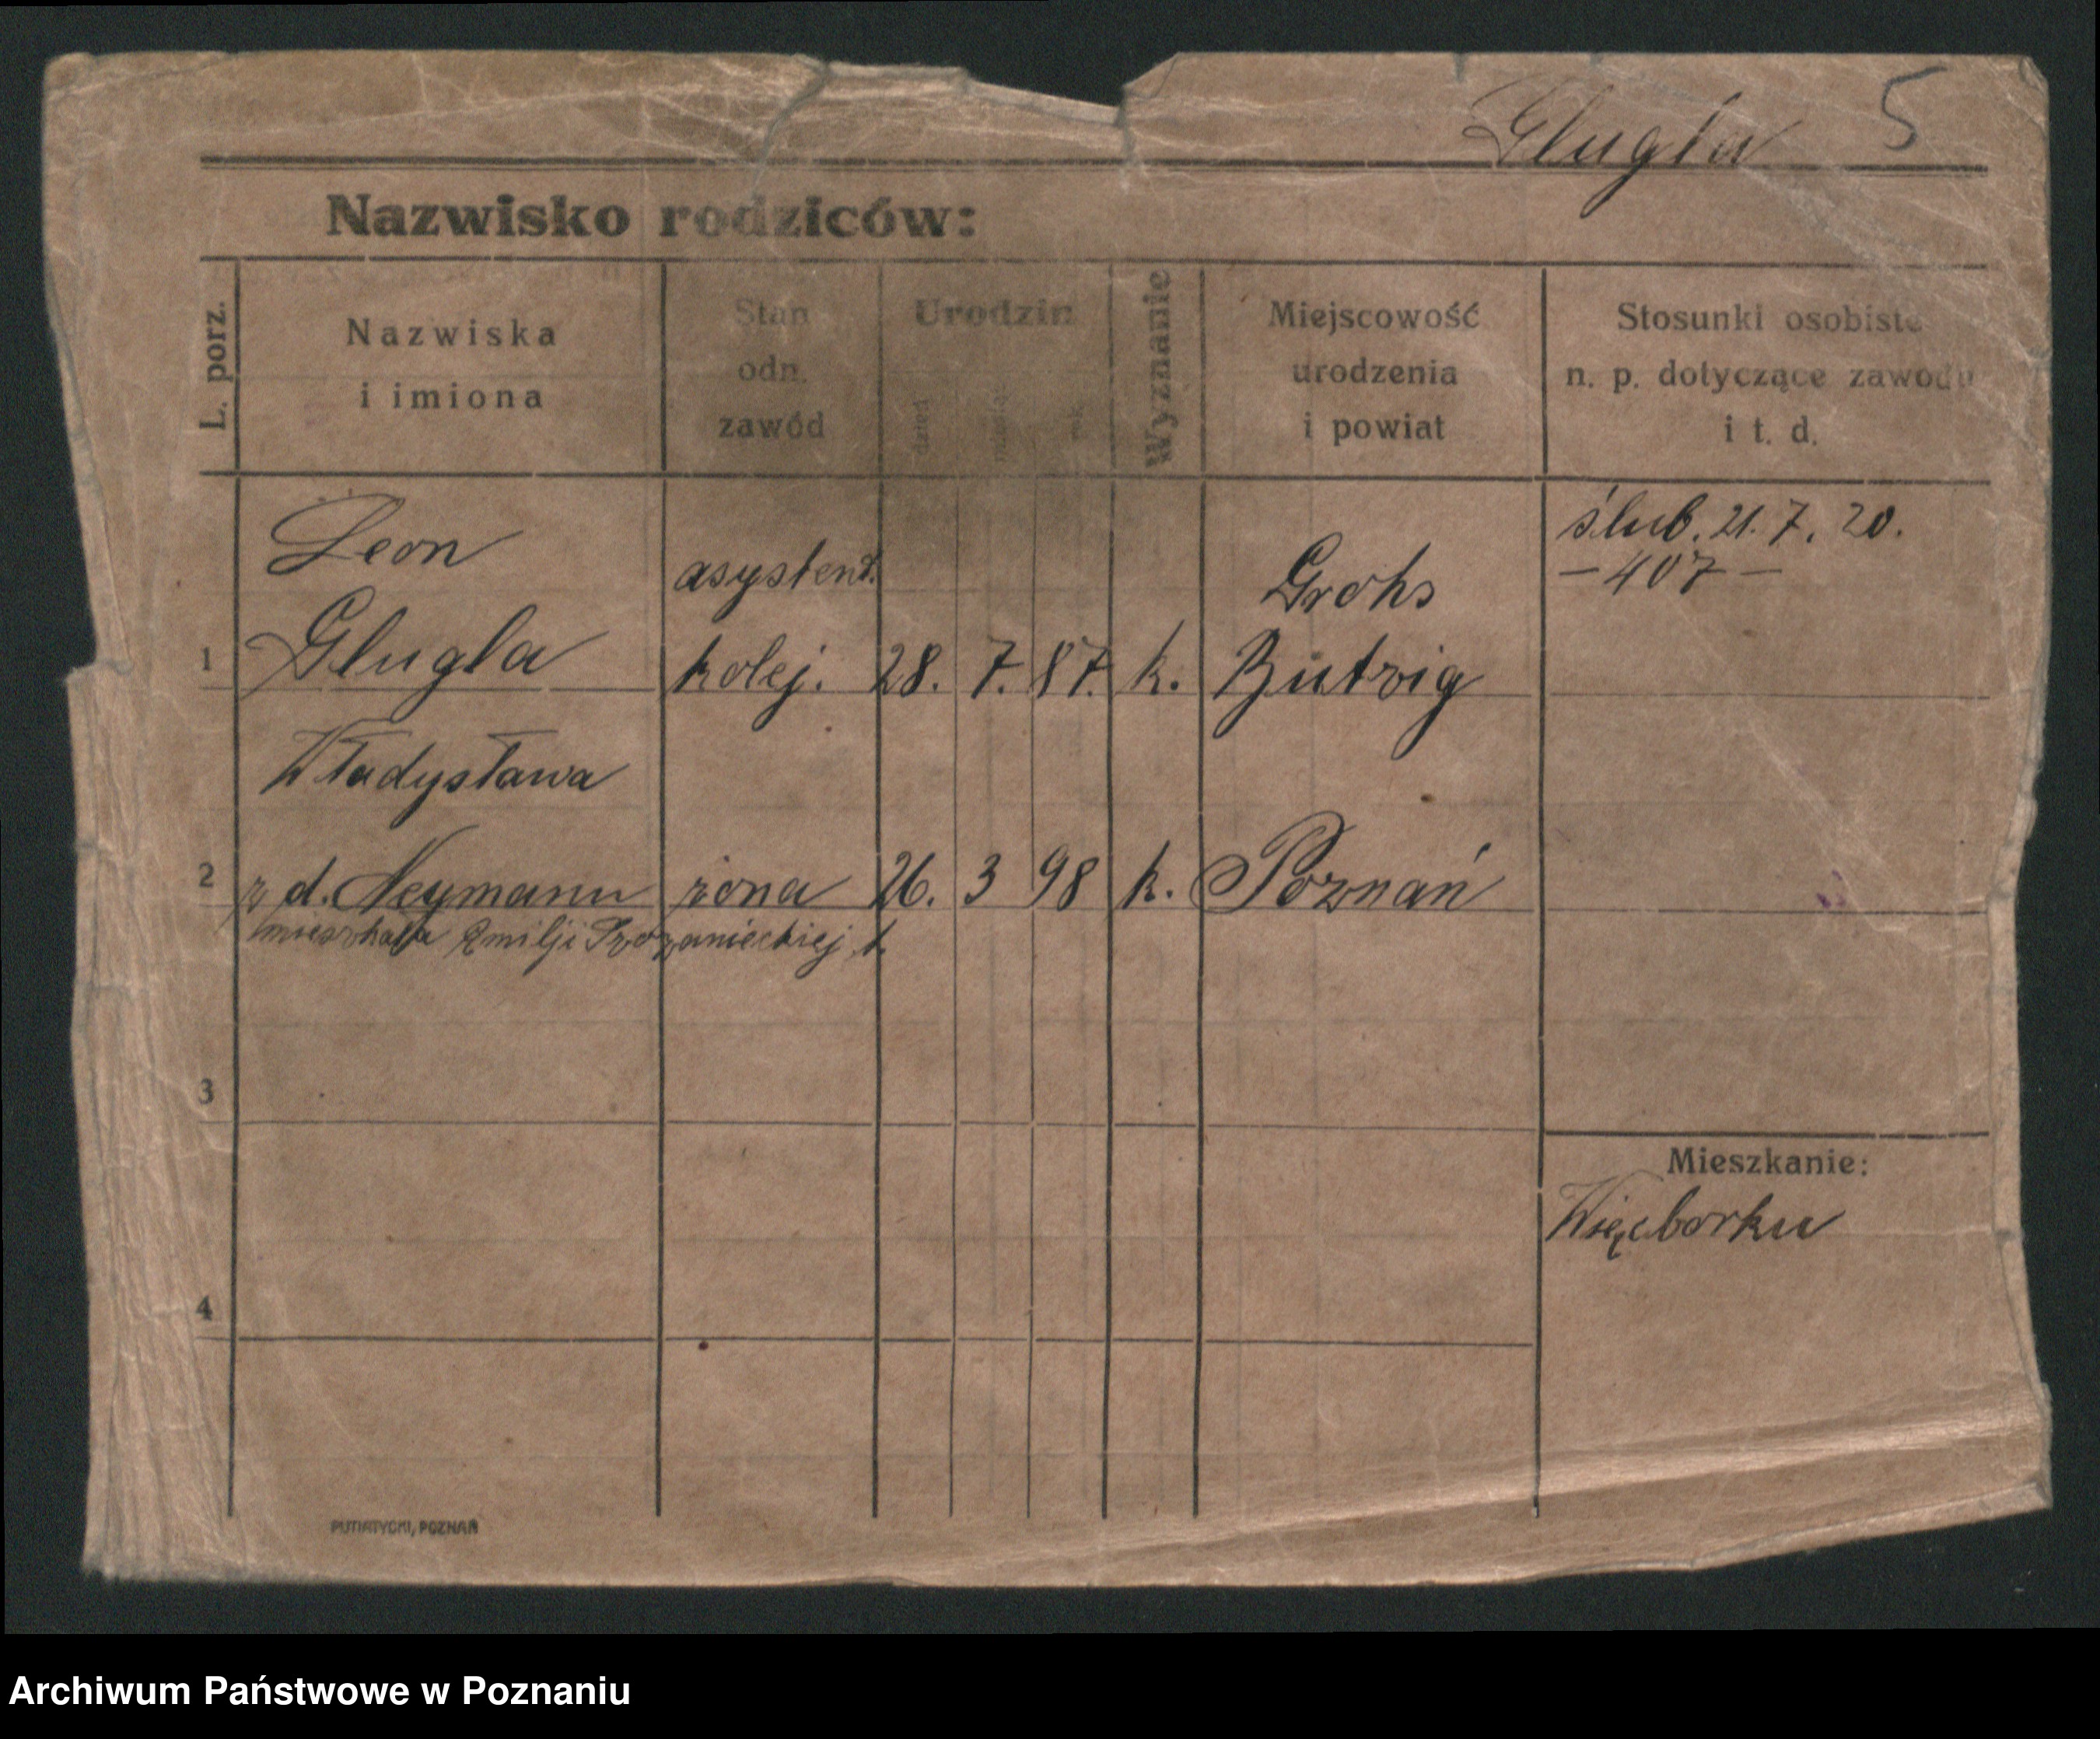 Glugla 5
Nazwisko rodziców:
L. porz.
Nazwiska
i imiona
Stan
odn.
zawód
Urodzin
dzień
miesiąc
rok
Wyznanie
Miejscowość
urodzenia
i powiat
Stosunki osobiste
n. p. dotyczące zawodu
i t. d.
ślub. 21. 7. 20.
— 407 —
Leon
asystent.
Grohs
1 Glugla kolej. 28. 7. 87. k. Butzig
Władysława
2 z d. Neymann żona 26. 3 98 k. Poznań
mieszkała Emilji Szczanieckiej 1.
3
Mieszkanie:
Więcborku
4
PUTIATYCKI, POZNAŃ
Archiwum Państwowe w Poznaniu